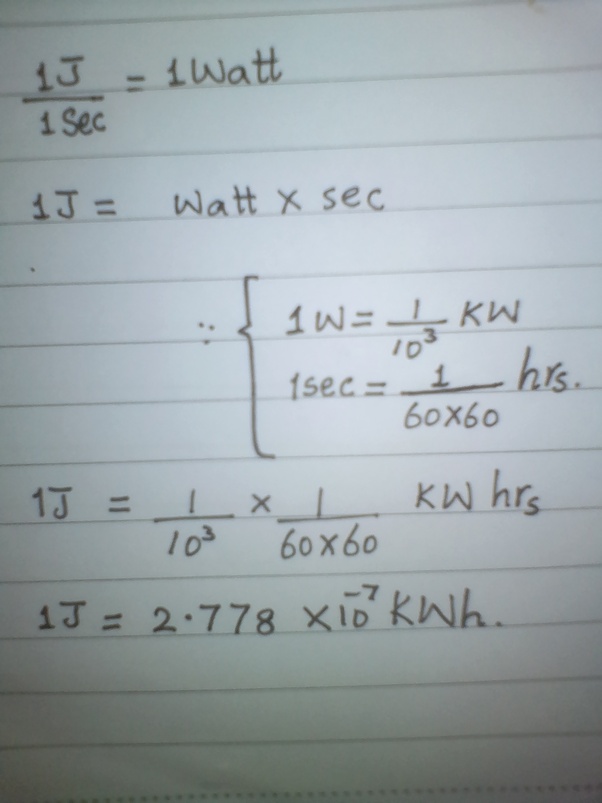 1J/1 Sec = 1 Watt
1J = Watt × sec
∵ { 1 W = 1/10³ KW
1 sec = 1/60×60 hrs.
1J = 1/10³ × 1/60×60 KW hrs
1J = 2.778 ×10⁻⁷ KWh.